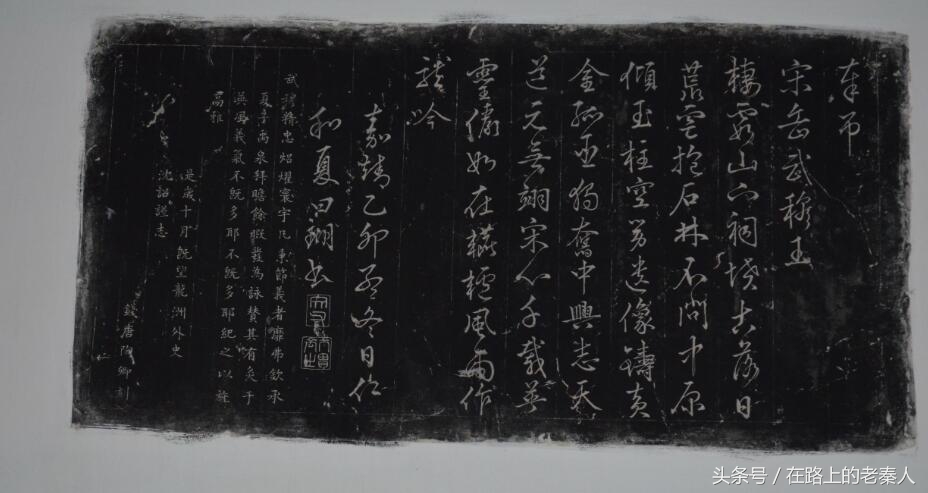 奉吊
宋岳武穆王
棲霞山下祠墳古落日
荒雲抱石林不問中原
傾玉柱空勞遺像鑄黃
金孤臣獨奮中興志天
道元無翊宋心千載英
靈儼如在轅轤風雨作
龍吟
嘉靖乙卯孟冬日仁
和夏曰瑚書
武穆精忠焜燿寰宇凡秉節義者靡弗欽承
夏子禹泉拜瞻餘慨發為詠贊其有矣于
英風義氣不既多耶不既多耶紀之以旌
高雅
是歲十月既望龍洲外史
沈詔謹志
錢唐陶卿刻
头条号 / 在路上的老秦人